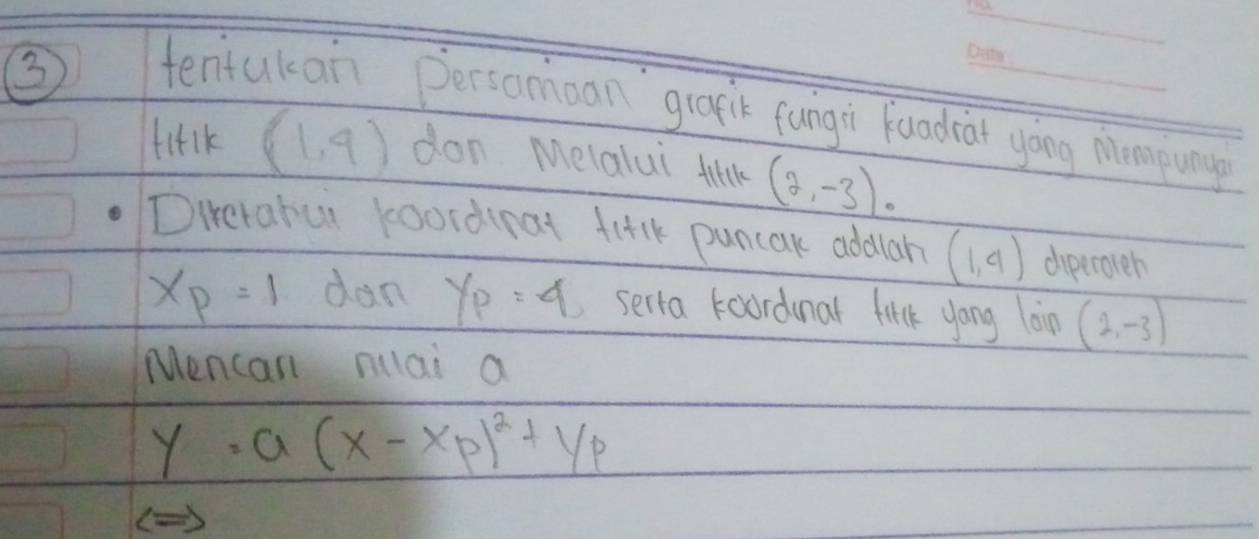 No
Date
③ tentukan Persamaan grafik fungsi kuadrat yang Mempunyai
titik (1,4) dan Melalui titik (2,-3).
• Diketahui koordinat titik puncak adalah (1,4) diperoleh
xp = 1 dan yp = 4 serta koordinat titik yang lain (2,-3)
Mencari nilai a
y = a (x - xp)² + yp
<=>